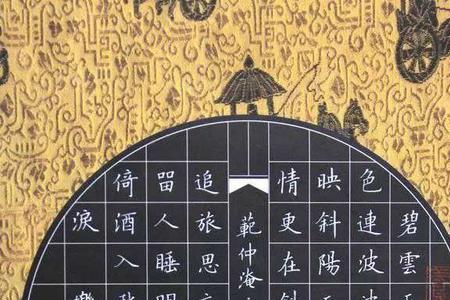 碧雲
色連波
映斜陽
情更在斜
範仲淹
追旅思
留人睡明
倚酒入
淚